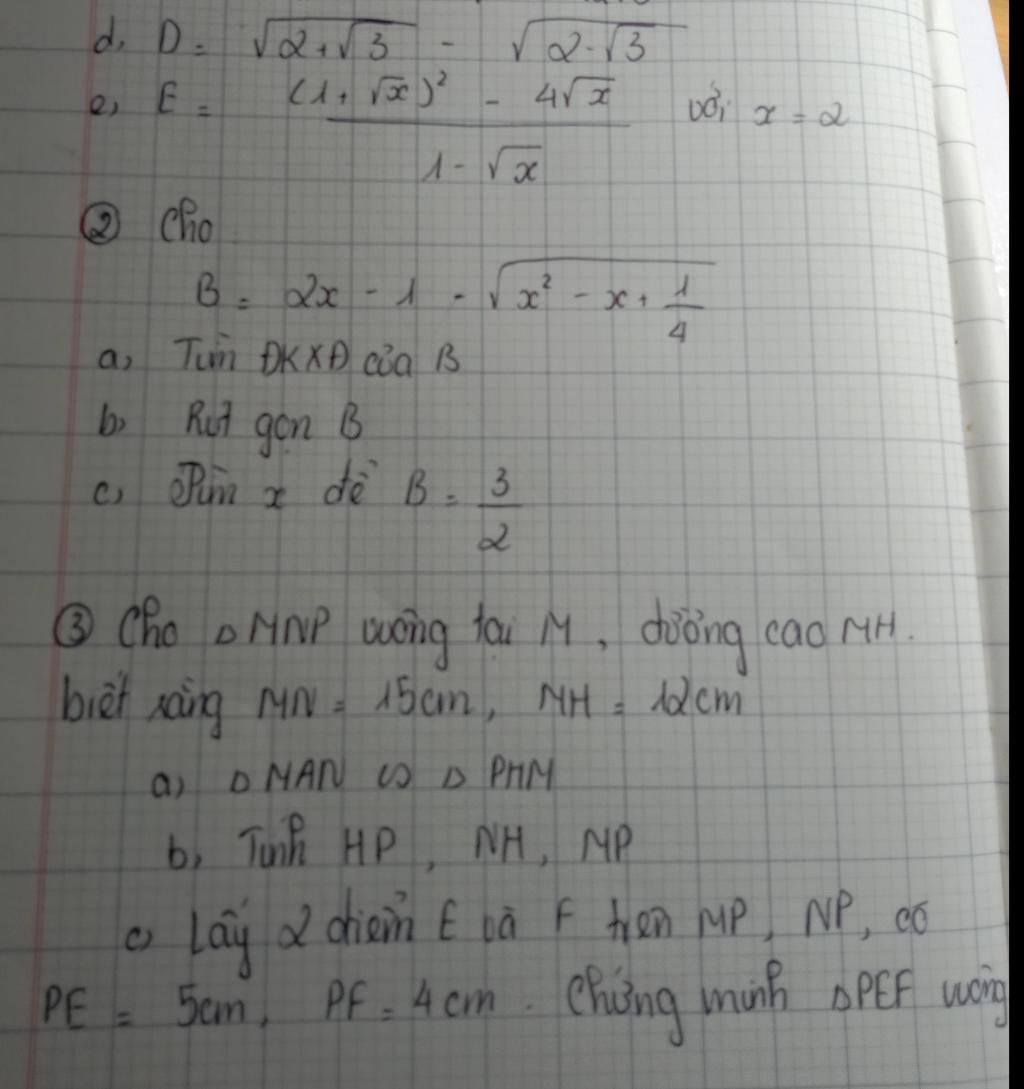 d, D = √(2+√3) - √(2-√3)
e, E = ((1+√x)² - 4√x)/(1-√x) với x = 2
② Cho
B = 2x - 1 - √(x² - x + 1/4)
a, Tìm ĐKXĐ của B
b, Rút gọn B
c, Tìm x để B = 3/2
③ Cho △MNP vuông tại M, đường cao MH.
biết rằng MN = 15cm, MH = 12cm
a) △MAN ∽ △PHM
b, Tính HP, NH, MP
c, Lấy 2 điểm E và F trên MP, NP, có
PE = 5cm, PF = 4cm. Chứng minh △PEF vuông